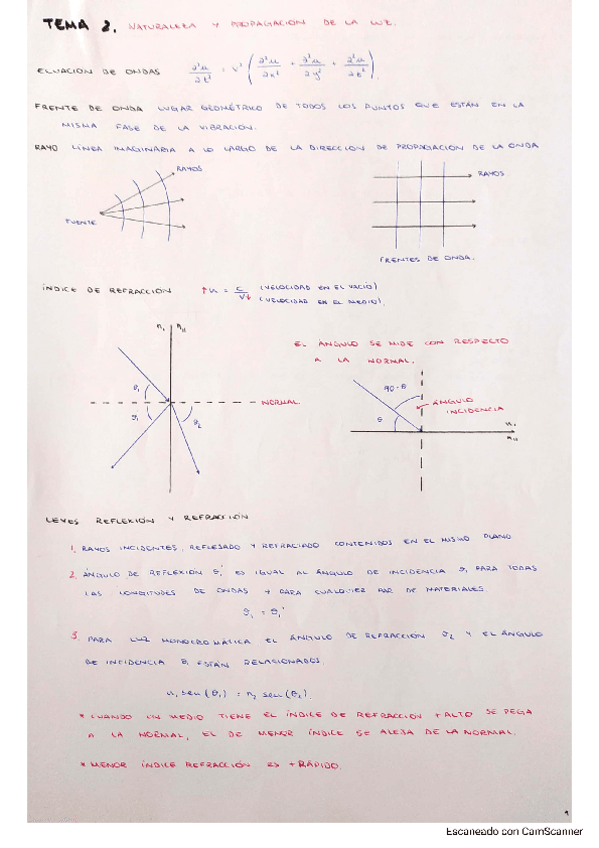 TEMA 2. NATURALEZA Y PROPAGACIÓN DE LA LUZ.
ECUACIÓN DE ONDAS ∂²u/∂t² = v² (∂²u/∂x² + ∂²u/∂y² + ∂²u/∂z²).
FRENTE DE ONDA LUGAR GEOMÉTRICO DE TODOS LOS PUNTOS QUE ESTÁN EN LA
MISMA FASE DE LA VIBRACIÓN.
RAYO LÍNEA IMAGINARIA A LO LARGO DE LA DIRECCIÓN DE PROPAGACIÓN DE LA ONDA
RAYOS
FUENTE
RAYOS
FRENTES DE ONDA.
ÍNDICE DE REFRACCIÓN ↑n = c/v↓ (VELOCIDAD EN EL VACÍO)
(VELOCIDAD EN EL MEDIO).
n₁ n₂
θ₁
θ₁
θ₂
NORMAL
EL ÁNGULO SE MIDE CON RESPECTO
A LA NORMAL.
90-θ
θ
ÁNGULO
INCIDENCIA
n₁
n₂
LEYES REFLEXIÓN Y REFRACCIÓN
1. RAYOS INCIDENTES, REFLEJADO Y REFRACTADO CONTENIDOS EN EL MISMO PLANO
2. ÁNGULO DE REFLEXIÓN θ₁' ES IGUAL AL ÁNGULO DE INCIDENCIA θ₁ PARA TODAS
LAS LONGITUDES DE ONDAS Y PARA CUALQUIER PAR DE MATERIALES.
θ₁ = θ₁'
3. PARA LUZ MONOCROMÁTICA EL ÁNGULO DE REFRACCIÓN θ₂ Y EL ÁNGULO
DE INCIDENCIA θ₁ ESTÁN RELACIONADOS.
n₁ sen (θ₁) = n₂ sen (θ₂).
* CUANDO UN MEDIO TIENE EL ÍNDICE DE REFRACCIÓN + ALTO SE PEGA
A LA NORMAL, EL DE MENOR ÍNDICE SE ALEJA DE LA NORMAL.
* MENOR ÍNDICE REFRACCIÓN ES + RÁPIDO.
1
Escaneado con CamScanner